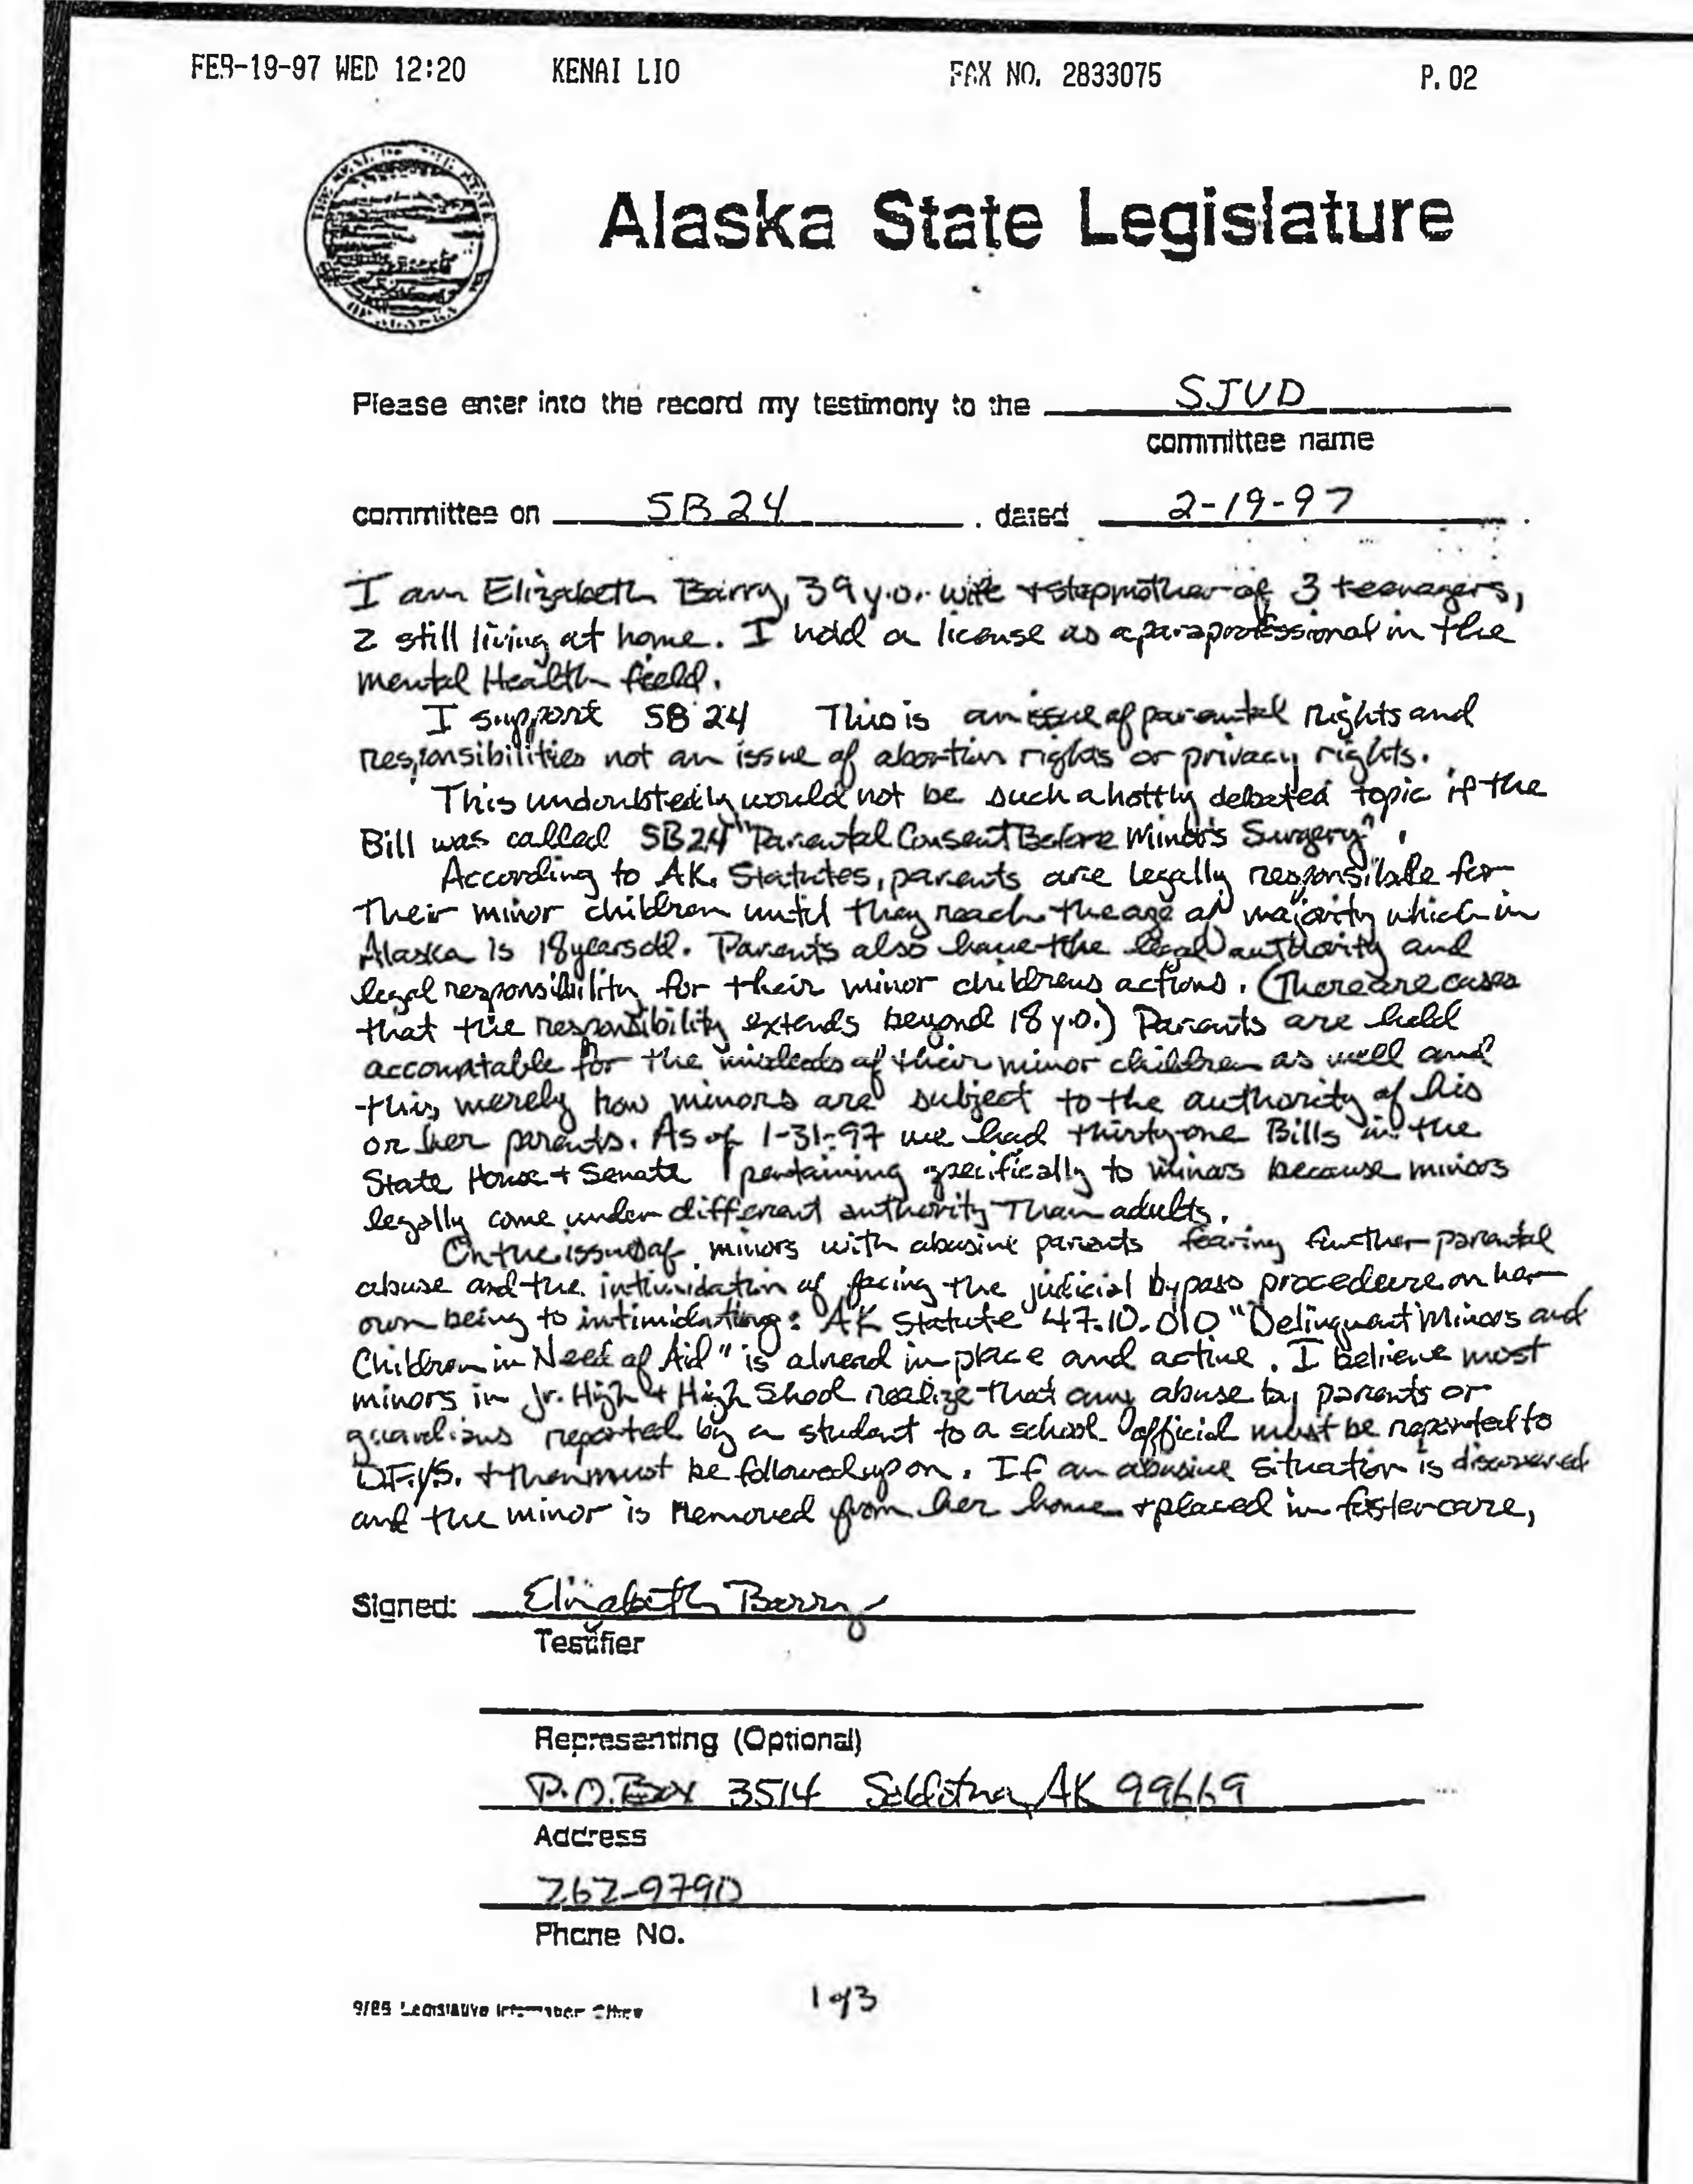 FEB-19-97 WED 12:20 KENAI LIO FAX NO. 2833075 P. 02
Alaska State Legislature
Please enter into the record my testimony to the SJUD
committee name
committee on SB 24 . dated 2-19-97 .
I am Elizabeth Barry, 39 y.o. wife + stepmother of 3 teenagers,
2 still living at home. I hold a license as a paraprofessional in the
mental Health field.
I support SB 24 This is an issue of parental rights and
responsibilities not an issue of abortion rights or privacy rights.
This undoubtedly would not be such a hottly debated topic if the
Bill was called SB24 "Parental Consent Before Minor's Surgery".
According to AK. Statutes, parents are legally responsible for
their minor children until they reach the age of majority which in
Alaska is 18 years old. Parents also have the legal authority and
legal responsibility for their minor childrens actions. (There are cases
that the responsibility extends beyond 18 y.o.) Parents are held
accountable for the misdeeds of their minor children as well and
this, merely how minors are subject to the authority of his
or her parents. As of 1-31-97 we had thirty one Bills in the
State House + Senate pertaining specifically to minors because minors
legally come under different authority than adults.
On the issue of minors with abusive parents fearing further parental
abuse and the intimidation of facing the judicial bypass procedeure on her
own being to intimidating: AK Statute 47.10.010 "Delinquant Minors and
Children in Need of Aid" is alread in place and active. I believe most
minors in Jr. High + High Shool realize that any abuse by parents or
guardians reported by a student to a school official must be reported to
D.F.Y.S. + then must be followed up on. If an abusive situation is discovered
and the minor is removed from her home + placed in foster care,
Signed: Elizabeth Barry
Testifier
Representing (Optional)
P.O. Box 3514 Soldotna, AK 99669
Address
262-9790
Phone No.
9/85 Legislative Information Office
1 of 3